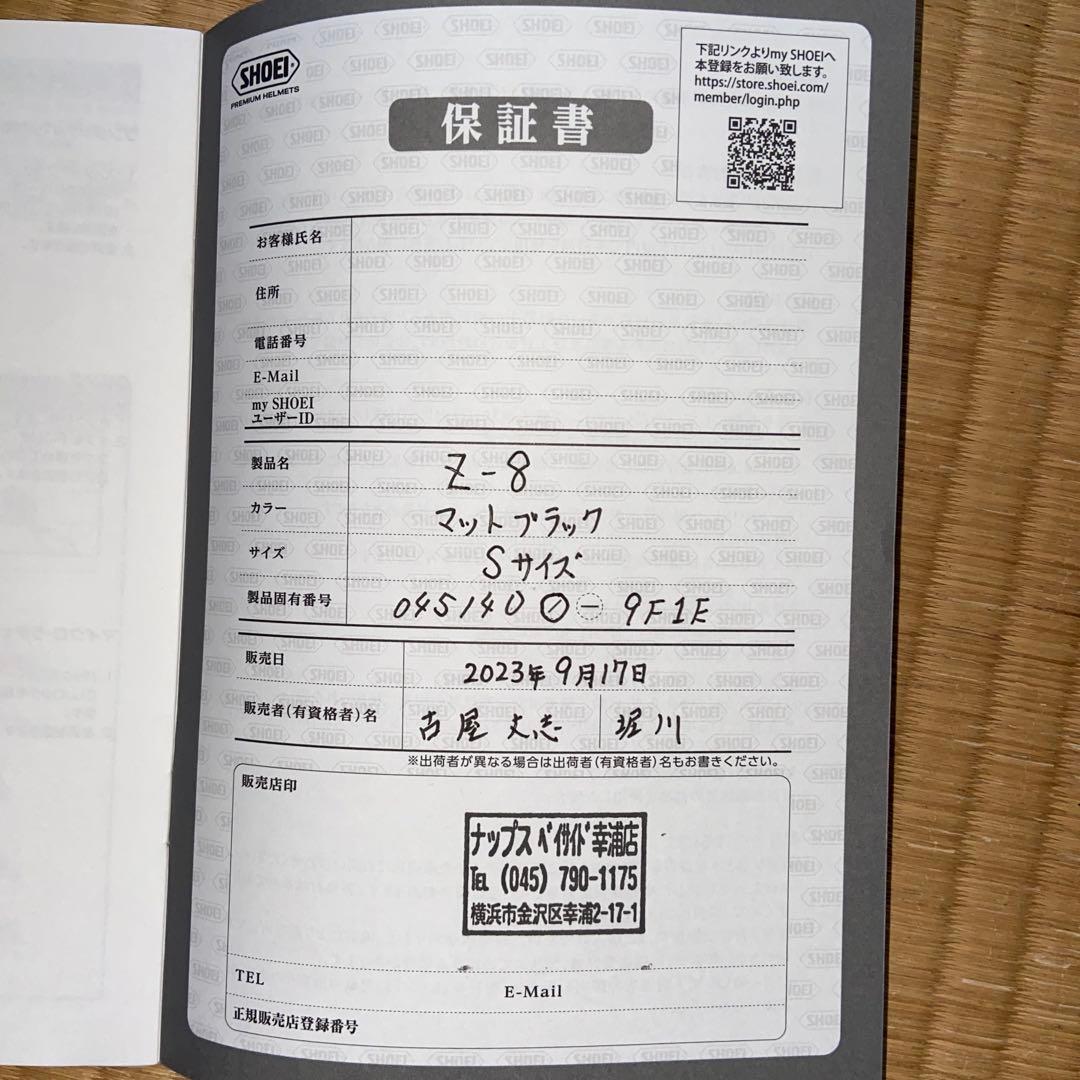 SHOEI
PREMIUM HELMETS
下記リンクよりmy SHOEIへ
本登録をお願い致します。
https://store.shoei.com/
member/login.php
保証書
お客様氏名
住所
電話番号
E-Mail
my SHOEI
ユーザーID
製品名 Z-8
カラー マットブラック
サイズ Sサイズ
製品固有番号 0451400-9F1E
販売日 2023年9月17日
販売者(有資格者)名 古屋 丈志 堀川
※出荷者が異なる場合は出荷者(有資格者)名もお書きください。
販売店印
ナップス ベイサイド幸浦店
TEL (045) 790-1175
横浜市金沢区幸浦2-17-1
TEL
E-Mail
正規販売店登録番号